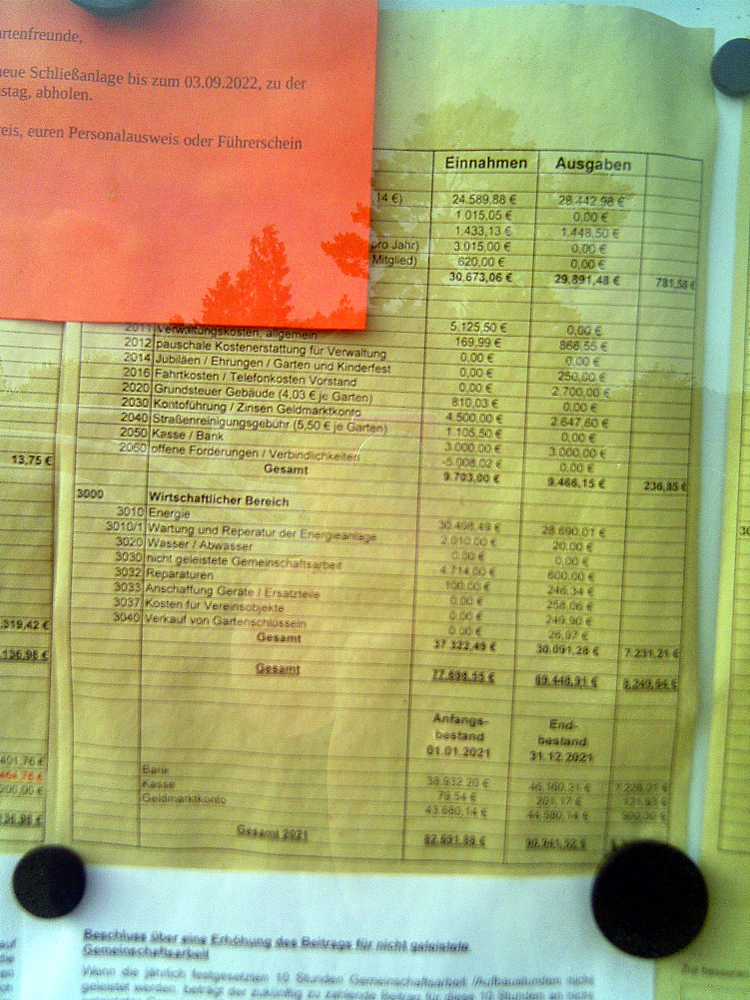 rtenfreunde,
neue Schließanlage bis zum 03.09.2022, zu der
stag, abholen.
eis, euren Personalausweis oder Führerschein
Einnahmen Ausgaben
14 €) 24.589,88 € 28.442,98 €
1.015,05 € 0,00 €
1.433,13 € 1.448,50 €
pro Jahr) 3.015,00 € 0,00 €
Mitglied) 620,00 € 0,00 €
30.673,06 € 29.891,48 € 781,58 €
2011 Verwaltungskosten, allgemein 5.125,50 € 0,00 €
2012 pauschale Kostenerstattung für Verwaltung 169,99 € 868,55 €
2014 Jubiläen / Ehrungen / Garten und Kinderfest 0,00 € 0,00 €
2016 Fahrtkosten / Telefonkosten Vorstand 0,00 € 250,00 €
2020 Grundsteuer Gebäude (4,03 € je Garten) 0,00 € 2.700,00 €
2030 Kontoführung / Zinsen Geldmarktkonto 810,03 € 0,00 €
2040 Straßenreinigungsgebühr (5,50 € je Garten) 4.500,00 € 2.647,60 €
2050 Kasse / Bank 1.105,50 € 0,00 €
2060 offene Forderungen / Verbindlichkeiten 3.000,00 € 3.000,00 €
-5.008,02 € 0,00 €
Gesamt 9.703,00 € 9.466,15 € 236,85 €
13,75 €
3000 Wirtschaftlicher Bereich
3010 Energie 30.498,49 € 28.690,01 €
3010/1 Wartung und Reperatur der Energieanlage 2.010,00 € 20,00 €
3020 Wasser / Abwasser 0,00 € 0,00 €
3030 nicht geleistete Gemeinschaftsarbeit 4.714,00 € 600,00 €
3032 Reparaturen 100,00 € 246,34 €
3033 Anschaffung Geräte / Ersatzteile 0,00 € 258,06 €
3037 Kosten für Vereinsobjekte 0,00 € 249,90 €
3040 Verkauf von Gartenschlüsseln 0,00 € 26,97 €
Gesamt 37.322,49 € 30.091,28 € 7.231,21 €
319,42 €
136,98 €
Gesamt 77.698,55 € 69.448,91 € 8.249,64 €
Anfangs-
bestand
01.01.2021
End-
bestand
31.12.2021
Bank 38.932,20 € 46.160,21 € 7.228,01 €
Kasse 79,54 € 201,17 € 121,63 €
Geldmarktkonto 43.680,14 € 44.580,14 € 900,00 €
401,76 €
Gesamt 2021 82.691,88 €
Beschluss über eine Erhöhung des Beitrags für nicht geleistete
Gemeinschaftsarbeit
Wenn die jährlich festgesetzten 10 Stunden Gemeinschaftsarbeit /Aufbaustunden nicht
geleistet werden, beträgt der zukünftig zu zahlende Beitrag für diese 10 Stunden an nicht